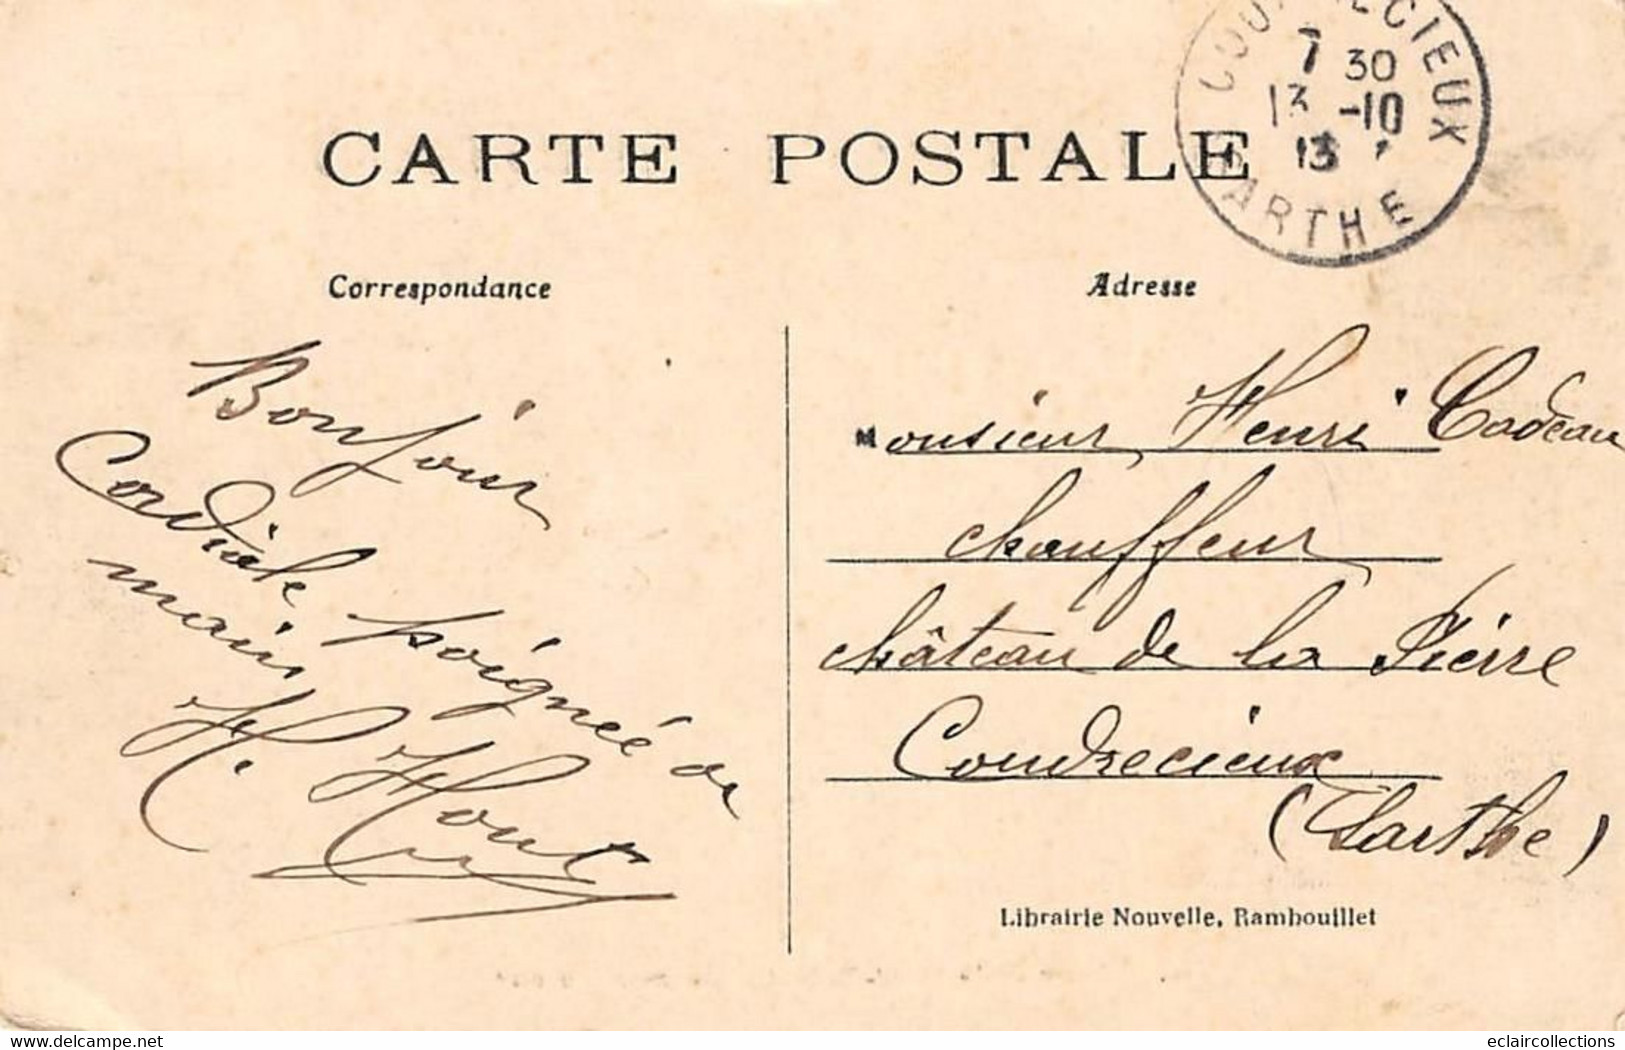 7 30
13 -10
13
SARTHE
CARTE POSTALE
Correspondance
Adresse
Bonjour
Cordiale poignée de
main
H.
Monsieur Henri Cadeau
chauffeur
château de la Pierre
Coudrecieux
(Sarthe)
Librairie Nouvelle, Rambouillet
delcampe.net
eclaircollections